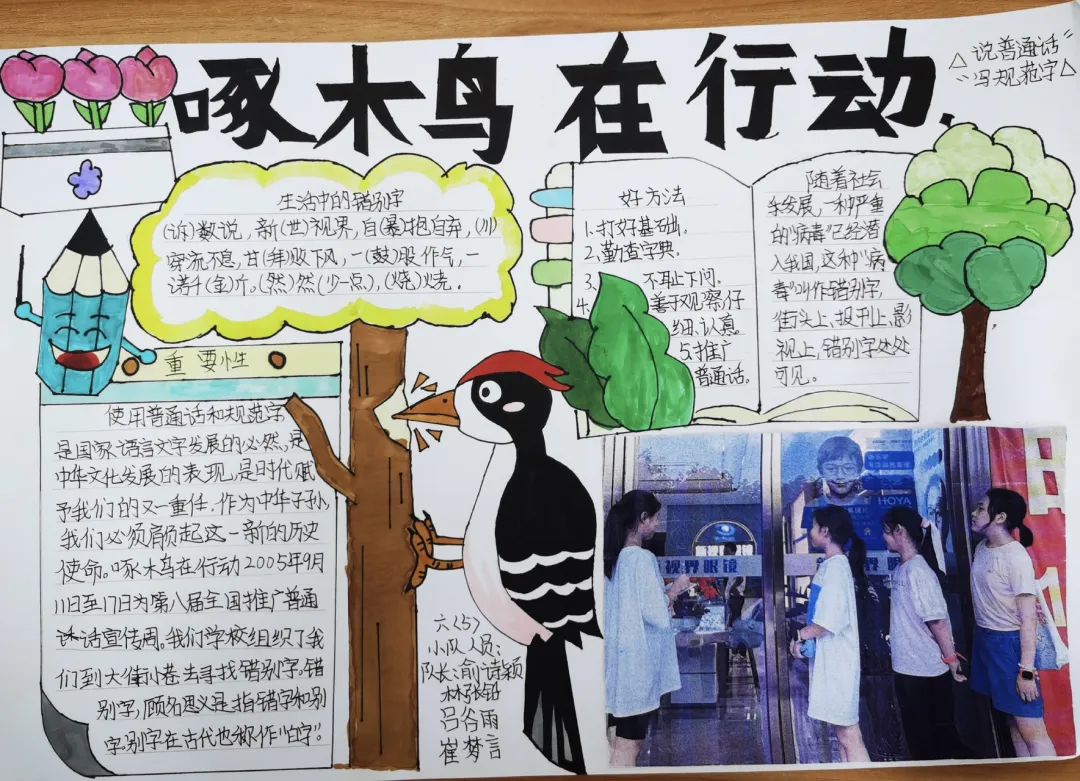 啄木鸟在行动
说普通话
写规范字
生活中的错别字
(诉)数说，新(世)视界，自(暴)抱自弃，(川)
穿流不息，甘(拜)败下风，一(鼓)股作气，一
诺千(金)斤。(然)燃(少一点)，(烧)烧.
好方法
1.打好基础。
2.勤查字典。
3. 不耻下问。
4. 善于观察,仔
细、认真
与推广
普通话。
随着社会
来发展，一种严重
的"病毒"已经潜
入我国，这种"病
毒"叫作错别字，
街头上、报刊上、影
视上，错别字处处
可见。
重要性
使用普通话和规范字
是国家语言文字发展的必然、是
中华文化发展的表现，是时代赋
予我们的又一重任，作为中华子孙，
我们必须肩负起这一新的历史
使命。啄木鸟在行动2005年9月
11日至17日为第八届全国推广普通
话宣传周。我们学校组织了我
们到大街小巷去寻找错别字。错
别字，顾名思义是指错字和别
字.别字在古代也称作"白字"。
六(5)
小队人员：
队长：俞诗颖
吕谷雨
崔梦言
HOYA
新视界眼镜
视界眼镜